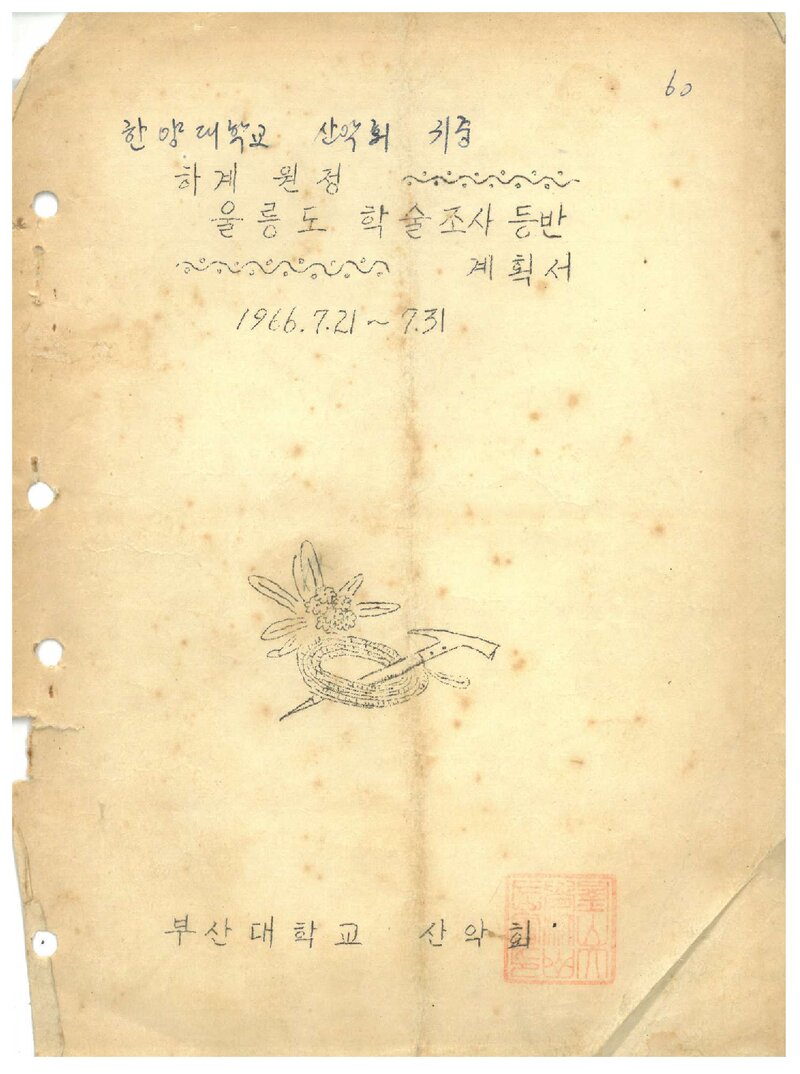 60
한양대학교 산악회 귀중
하계 원정
울릉도 학술조사 등반
계획서
1966.7.21 ~ 7.31
부산대학교 산악회